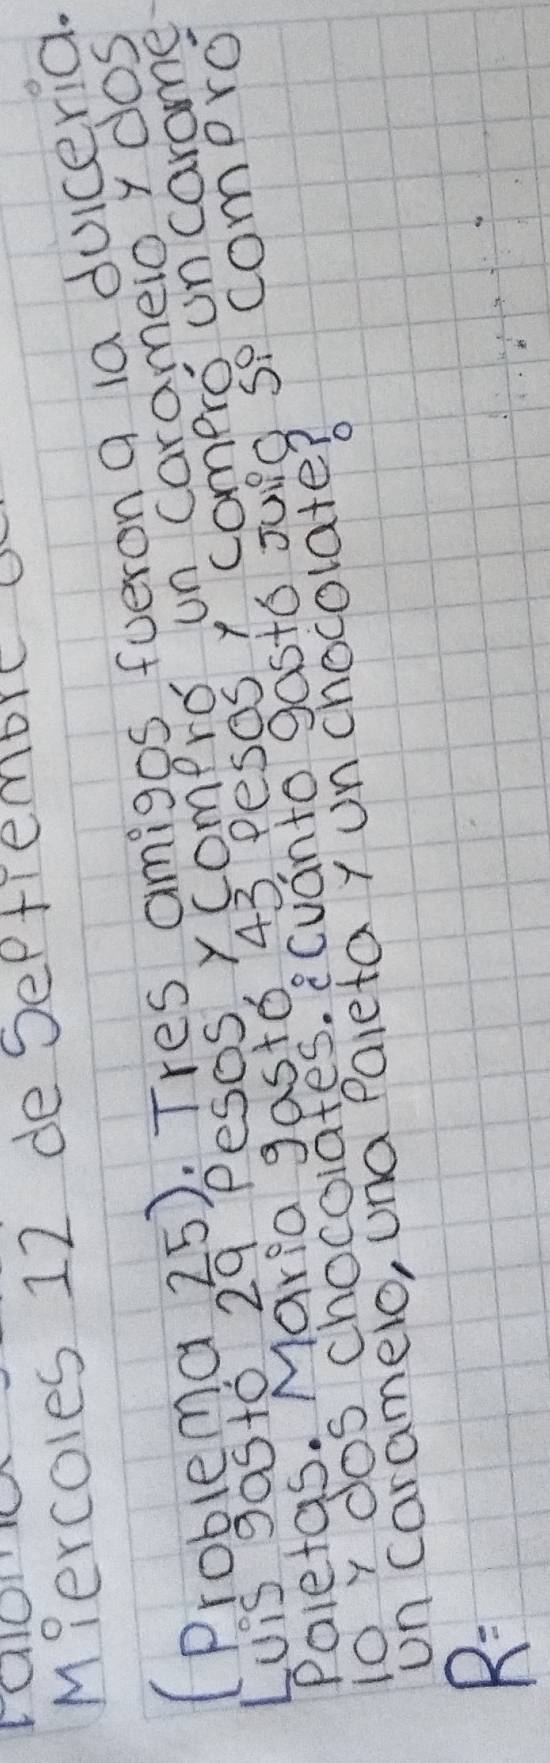 Miercoles 12 de Septiembre
(Problema 25). Tres amigos fueron a la dulceria.
Luis gastó 29 pesos y compró un caramelo y dos
Paletas. Maria gastó 43 pesos y compró un carame-
lo y dos chocolates. ¿cuánto gastó Julia si compró
un caramelo, una Paleta y un chocolate?
R=